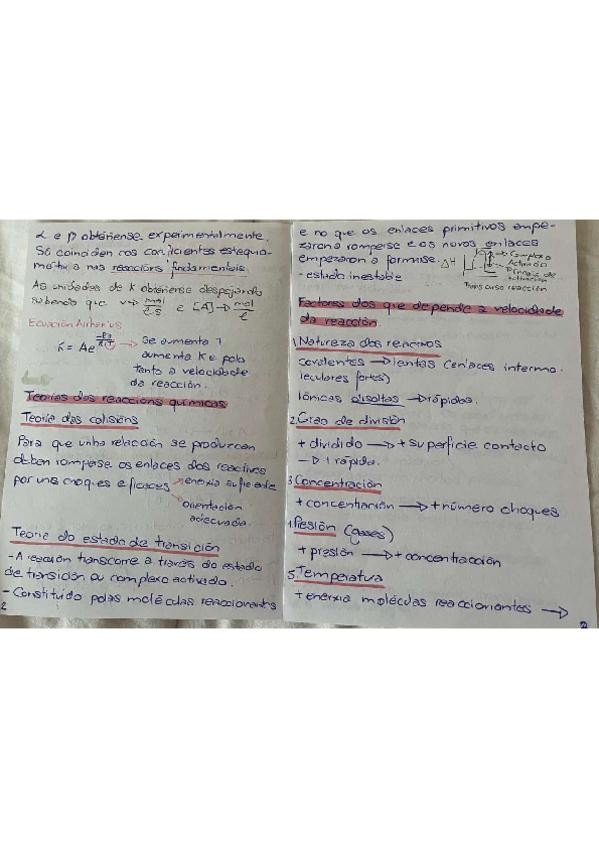 α e β obtéñense experimentalmente.
Só coinciden cos coeficientes estequio-
métricos nas reaccións fundamentais.
As unidades de K obtéñense despejando
sabendo que v → mol/L·s e [A] → mol/L
Ecuación Arrhenius
K = Ae^(-Ea/R·T) → Se aumenta T
aumenta K e pola
tanto a velocidade
da reacción.
Teorías das reaccións químicas
Teoría das colisións
Para que unha relacción se produzcan
deben romperse os enlaces dos reactivos
por uns choques eficaces → enerxía suficiente
→ orientación
adecuada.
Teoría do estado de transición
- A reacción transcorre a través do estado
de transición ou complexo activado.
- Constituído polas molécdas reaccionantes
2
e no que os enlaces primitivos empe-
zaron a romperse e os novos enlaces
empezaron a formarse. ΔH → Complexo
Activado
Enerxía de
activación
- estado inestable
Transcurso reacción
Factores dos que depende a velocidade
da reacción.
1. Natureza dos reactivos
covalentes → lentas (enlaces intermo-
leculares fortes)
Iónicas disoltas → rápidas.
2. Grao de división
+ dividido → + superficie contacto
→ + rápida.
3. Concentración
+ concentración → + número choques
4. Presión (gases)
+ presión → + concentracción
5. Temperatura
+ enerxía molécdas reaccionantes →